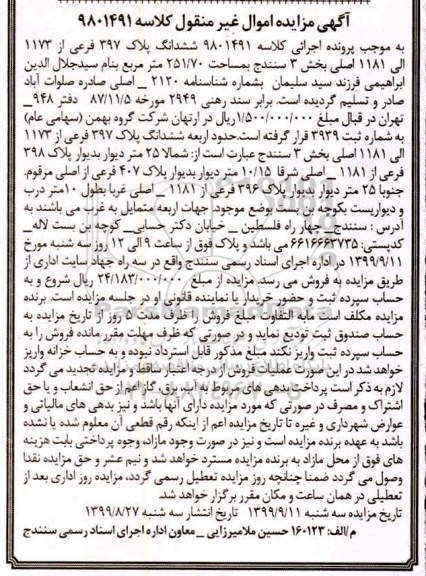 آگهی مزایده اموال غیر منقول کلاسه ۹۸۰۱۴۹۱
به موجب پرونده اجرائی کلاسه ۹۸۰۱۴۹۱ ششدانگ پلاک ۳۹۷ فرعی از ۱۱۷۳
الی ۱۱۸۱ اصلی بخش ۳ سنندج بمساحت ۲۵۱/۷۰ متر مربع بنام سیدجلال الدین
ابراهیمی فرزند سید سلیمان بشماره شناسنامه ۲۱۲۰ _ اصلی صادره صلوات آباد
صادر و تسلیم گردیده است. برابر سند رهنی ۲۹۴۹ مورخه ۸۷/۱۱/۵ دفتر ۹۴۸_
تهران در قبال مبلغ ۱/۵۰۰/۰۰۰/۰۰۰ریال در ارتهان شرکت گروه بهمن (سهامی عام)
به شماره ثبت ۳۹۳۹ قرار گرفته است.حدود اربعه ششدانگ پلاک ۳۹۷ فرعی از ۱۱۷۳
الی ۱۱۸۱ اصلی بخش ۳ سنندج عبارت است از: شمالا ۲۵ متر دیوار بدیوار پلاک ۳۹۸
فرعی از ۱۱۸۱ _ اصلی شرقا ۱۰/۱۵ متر دیوار بدیوار پلاک ۴۰۷ فرعی از اصلی مرقوم.
جنوبا ۲۵ متر دیوار بدیوار پلاک ۳۹۶ فرعی از ۱۱۸۱ _ اصلی غربا بطول ۱۰متر درب
و دیواریست بکوچه بن بست بوضع موجود جهات اربعه متمایل به غرب می باشند به
آدرس : سنندج_ چهار راه فلسطین _ خیابان دکتر حسابی_ کوچه بن بست لاله_
کدپستی: ۶۶۱۶۶۶۳۷۳۵ می باشد و پلاک فوق از ساعت ۹ الی ۱۲ روز سه شنبه مورخ
۱۳۹۹/۹/۱۱ در اداره اجرای اسناد رسمی سنندج واقع در سه راه جهاد سایت اداری از
طریق مزایده به فروش می رسد. مزایده از مبلغ ۲۴/۱۸۳/۰۰۰/۰۰۰ ریال شروع و به
حساب سپرده ثبت و حضور خریدار یا نماینده قانونی او در جلسه مزایده است. برنده
مزایده مکلف است مابه التفاوت مبلغ فروش را ظرف مدت ۵ روز از تاریخ مزایده به
حساب صندوق ثبت تودیع نماید و در صورتی که ظرف مهلت مقرر مانده فروش را به
حساب سپرده ثبت واریز نکند مبلغ مذکور قابل استرداد نبوده و به حساب خزانه واریز
خواهد شد در این صورت عملیات فروش از درجه اعتبار ساقط و مزایده تجدید می گردد
لازم به ذکر است پرداخت بدهی های مربوط به آب، برق، گاز اعم از حق انشعاب و یا حق
اشتراک و مصرف در صورتی که مورد مزایده دارای آنها باشد و نیز بدهی های مالیاتی و
عوارض شهرداری و غیره تا تاریخ مزایده اعم از اینکه رقم قطعی آن معلوم شده یا نشده
باشد به عهده برنده مزایده است و نیز در صورت وجود مازاد، وجوه پرداختی بابت هزینه
های فوق از محل مازاد به برنده مزایده مسترد خواهد شد و نیم عشر و حق مزایده نقدا
وصول می گردد ضمنا چنانچه روز مزایده تعطیل رسمی گردد، مزایده روز اداری بعد از
تعطیلی در همان ساعت و مکان مقرر برگزار خواهد شد.
تاریخ مزایده سه شنبه ۱۳۹۹/۹/۱۱ تاریخ انتشار سه شنبه ۱۳۹۹/۸/۲۷
م/الف: ۱۶۰۱۲۳ حسین ملامیرزایی _ معاون اداره اجرای اسناد رسمی سنندج